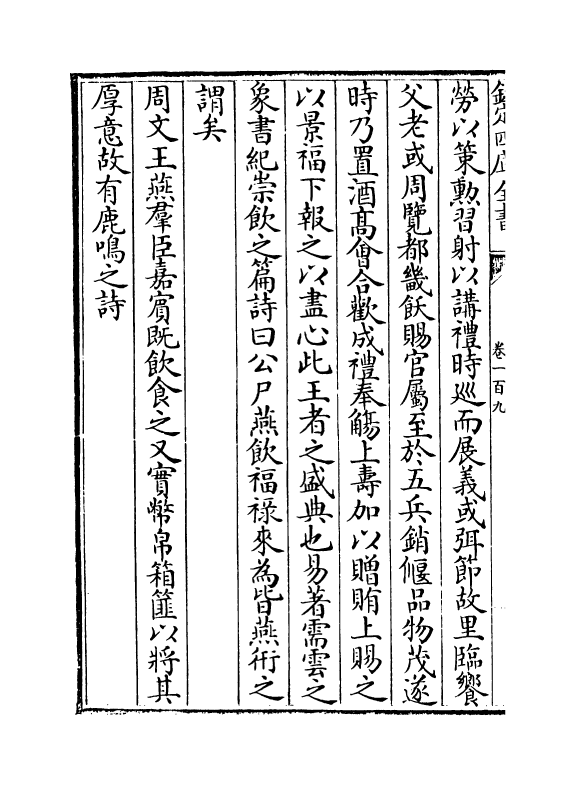 欽定四庫全書
卷一百九
勞以策勲習射以講禮時廵而展義或弭節故里臨饗
父老或周覽都畿飫賜官屬至於五兵銷偃品物茂遂
時乃置酒髙㑹合歡成禮奉觴上壽加以贈賄上賜之
以景福下報之以盡心此王者之盛典也易著需雲之
象書紀崇飲之篇詩曰公尸燕飲福祿來為皆燕衎之
謂矣
周文王燕羣臣嘉賓既飲食之又實幣帛箱篚以將其
厚意故有鹿鳴之詩